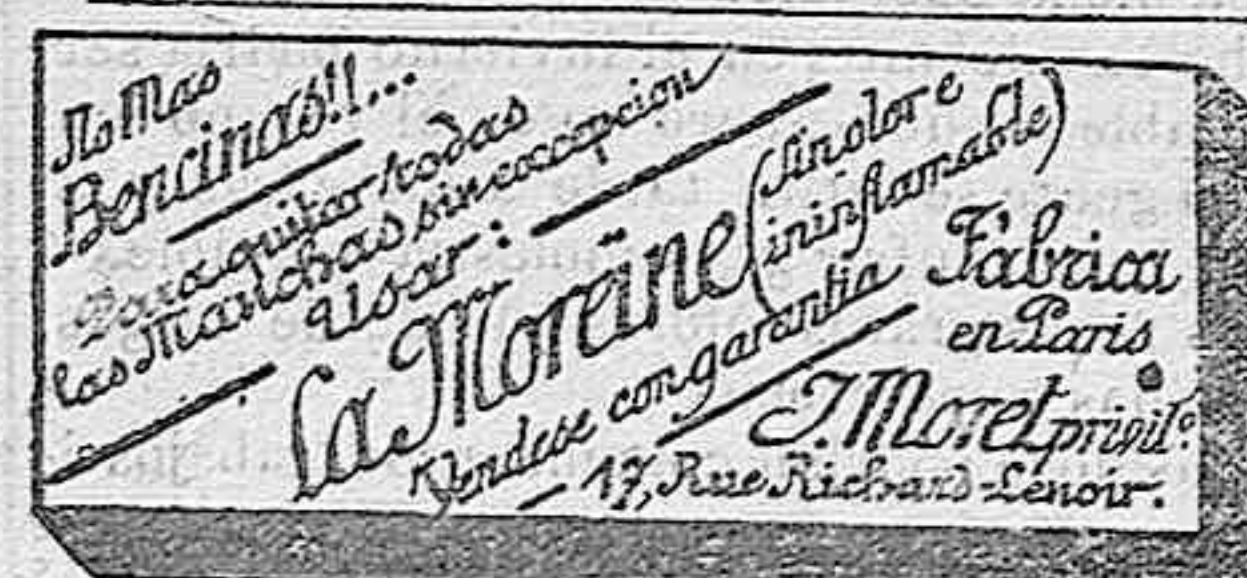 No Mas
Bencinas!!...
Para quitar todas
las Manchas sin eccepcion
Usar:
La Moreïne
(sin olor e
ininflamable)
Vendese con garantia
Fábrica
en Paris
J. Moret privil.º
17, Rue Richard-Lenoir.